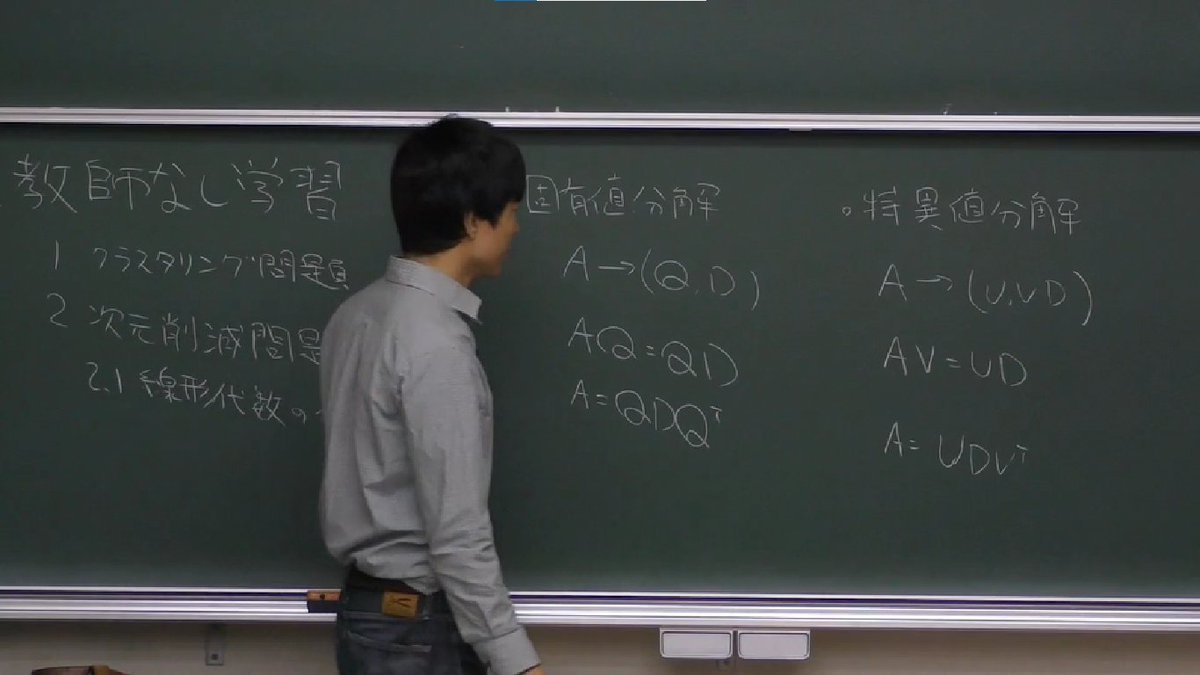 教師なし学習
1 クラスタリング問題
2 次元削減問題
2.1 線形代数の
固有値分解
A→(Q,D)
AQ=QD
A=QDQᵀ
。特異値分解
A→(U,V,D)
AV=UD
A=UDVᵀ